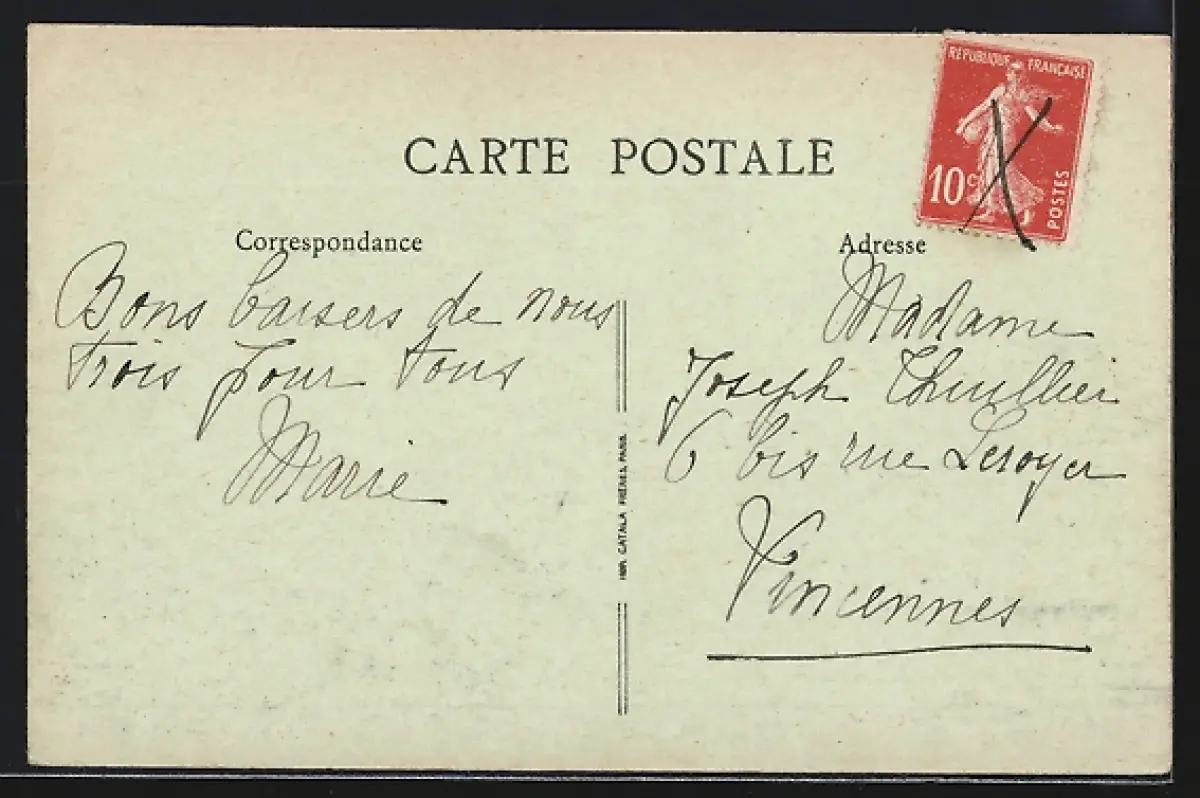 RÉPUBLIQUE FRANÇAISE
10c
POSTES
CARTE POSTALE
Correspondance
Bons baisers de nous
trois pour tous
Marie
IMP. CATALA FRÈRES, PARIS.
Adresse
Madame
Joseph Thuillier
6 bis rue Leroyer
Vincennes